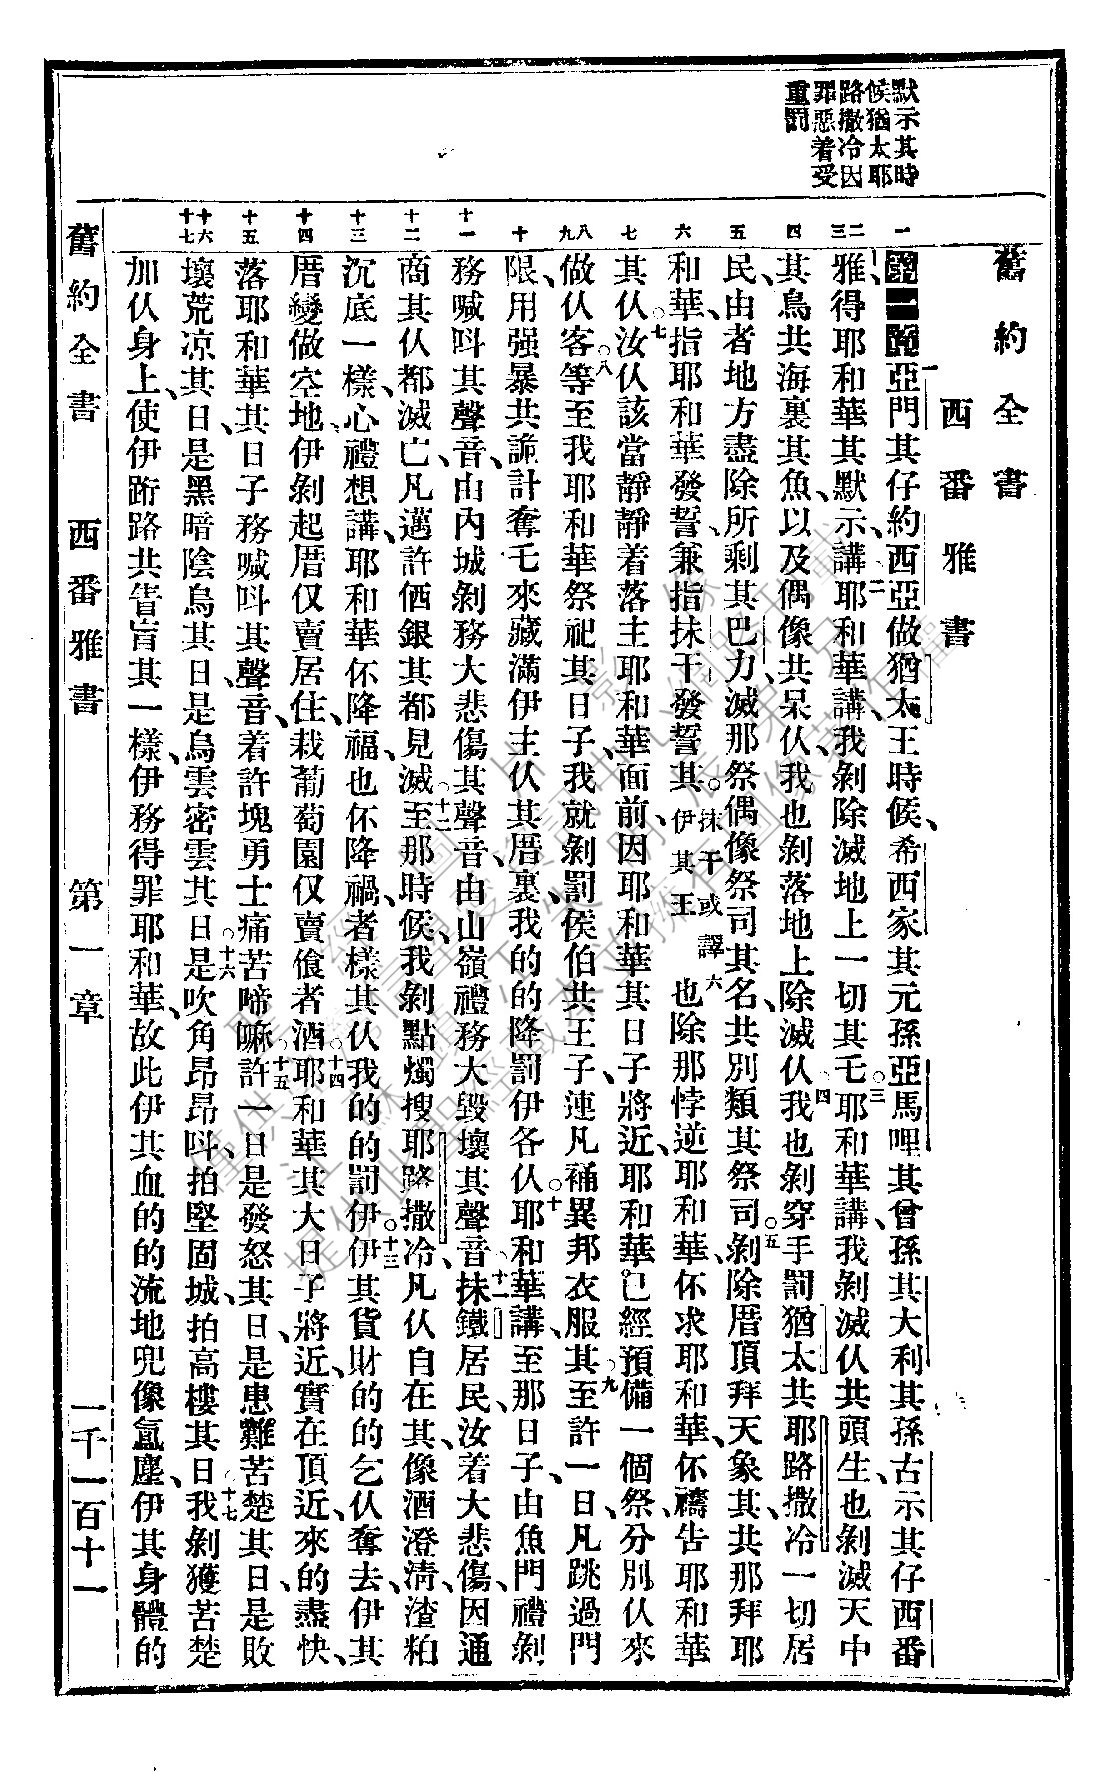 舊約全書
西番雅書
默示其時
候猶太耶
路撒冷因
罪惡着受
重罰
一 二 三 四 五 六 七 八 九 十 十一 十二 十三 十四 十五 十六 十七
第一章亞門其仔約西亞做猶太王時候、希西家其元孫亞馬哩其曾孫其大利其孫古示其仔西番
雅得耶和華其默示講耶和華講、我剝除滅地上一切其乇耶和華講、我剝滅仈共頭生、也剝滅天中
其鳥共海裏其魚、以及偶像共呆仈我也剝落地上除滅仈我也剝穿手罰猶太共耶路撒冷一切居
民、由者地方盡除所剩其巴力滅那祭偶像祭司其名、共別類其祭司剝除厝頂拜天象其共那拜耶
和華、指耶和華發誓、兼指抹干發誓其○抹干或譯伊其王 六也除那悖逆耶和華、伓求耶和華、伓禱告耶和華
其仈○七汝仈該當靜靜着落主耶和華面前、因耶和華其日子將近、耶和華已經預備一個祭、分別仈來
做仈客○八等至我耶和華祭祀其日子、我就剝罰侯伯共王子、連凡䘄異邦衣服其○九至許一日、凡跳過門
限、用强暴共詭計奪乇來藏滿伊主仈其厝裏、我的的降罰伊各仈○十耶和華講、至那日子、由魚門禮剝
務喊呌其聲音、由內城剝務大悲傷其聲音、由山嶺禮務大毀壞其聲音○十一抹鐵居民、汝着大悲傷、因通
商其仈都滅亡、凡邁許㐻銀其都見滅○十二至那時候、我剝點燭搜耶路撒冷、凡仈自在其、像酒澄淸、渣粕
沉底一樣、心禮想講、耶和華伓降福、也伓降禍、者樣其仈我的的罰伊○十三伊其貨財的的乞仈奪去、伊其
厝變做空地、伊剝起厝仅賣居住、栽葡萄園仅賣飱者酒○十四耶和華其大日子將近、實在頂近、來的盡快、
落耶和華其日子務喊呌其聲音、着許塊勇士痛苦啼嘛○十五許一日是發怒其日、是患難苦楚其日、是敗
壞荒凉其日、是黑暗陰烏其日、是烏雲密雲其日○十六是吹角昂昂呌、拍堅固城、拍高樓其日○十七我剝獲苦楚
加仈身上、使伊跨路共眚盲其一樣、伊務得罪耶和華、故此伊其血的的流地兜像氳塵、伊其身體的
舊約全書 西番雅書 第一章 一千一百十一